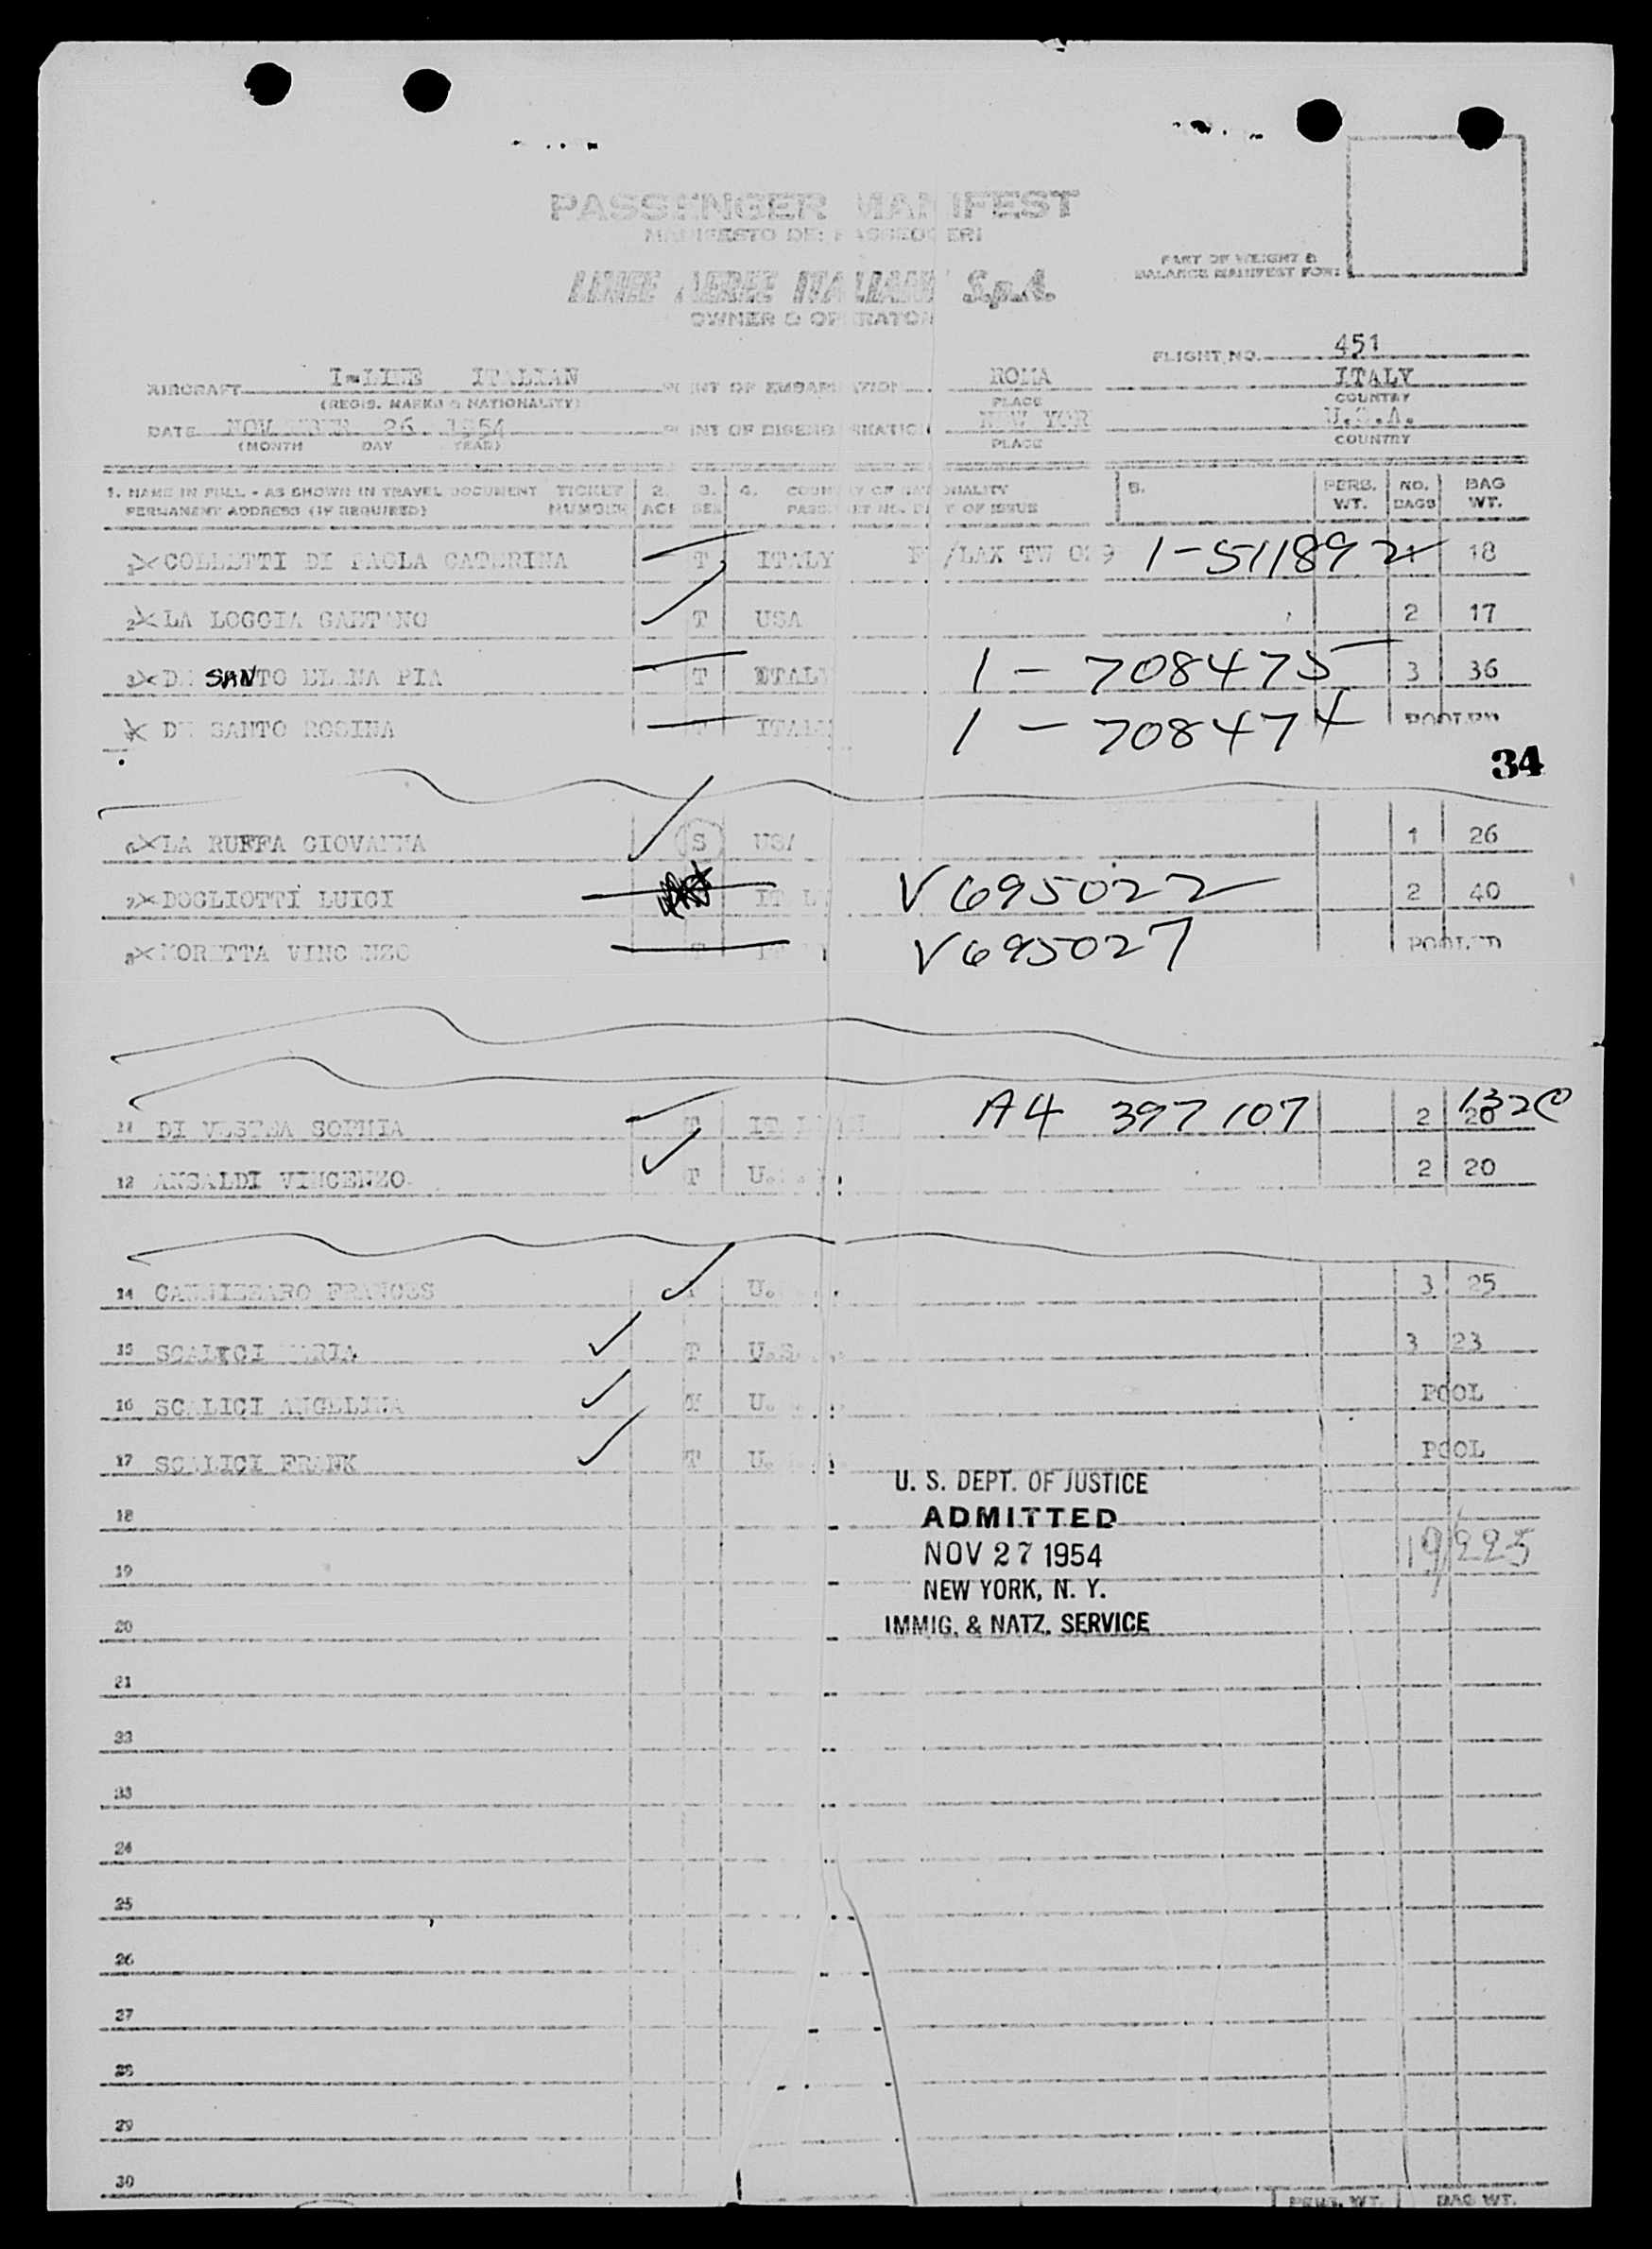 PASSENGER MANIFEST
MANIFESTO DEI PASSEGGERI
LINEE AEREE ITALIANE S.p.A.
OWNER O OPERATOR
PART OF WEIGHT &
BALANCE MANIFEST FOR:
FLIGHT NO. 451
AIRCRAFT I-LINE ITALIAN POINT OF EMBARKATION ROMA ITALY
(REGIS. MARKS & NATIONALITY) PLACE COUNTRY
DATE NOVEMBER 26 1954 POINT OF DISEMBARKATION NEW YORK U.S.A.
(MONTH DAY YEAR) PLACE COUNTRY
1. NAME IN FULL - AS SHOWN IN TRAVEL DOCUMENT TICKET 2. 3. 4. COUNTRY OF NATIONALITY 5. PERS. NO. BAG
PERMANENT ADDRESS (IF REQUIRED) NUMBER AGE SEX PASS. OF ISSUE WT. BAGS WT.
1 COLLETTI DI PAOLA CATERINA T ITALY /LAX TW 1-511892 18
2 LA LOGGIA GAETANO T USA 2 17
3 DE SANTO ELENA PIA T ITALY 1-708475 3 36
DE SANTO ROSINA T ITALY 1-708474 POOLED
34
LA RUFFA GIOVANNA S USA 1 26
7 DOGLIOTTI LUIGI ITALY V695022 2 40
8 MORETTA VINCENZO T V695027 POOLED
11 DI VESTEA SOFHIA T A4 397 107 2 20 132C
12 ANSALDI VINCENZO T U. 2 20
14 CANNIZZARO FRANCES U. 3 25
15 SCALICI MARIA T U.S. 3 23
16 SCALICI ANGELINA U. POOL
17 SCALICI FRANK T U. POOL
U. S. DEPT. OF JUSTICE
18 ADMITTED
NOV 27 1954 19/225
19 NEW YORK, N. Y.
20 IMMIG. & NATZ. SERVICE
21
22
23
24
25
26
27
28
29
30
PERS. WT. BAG WT.